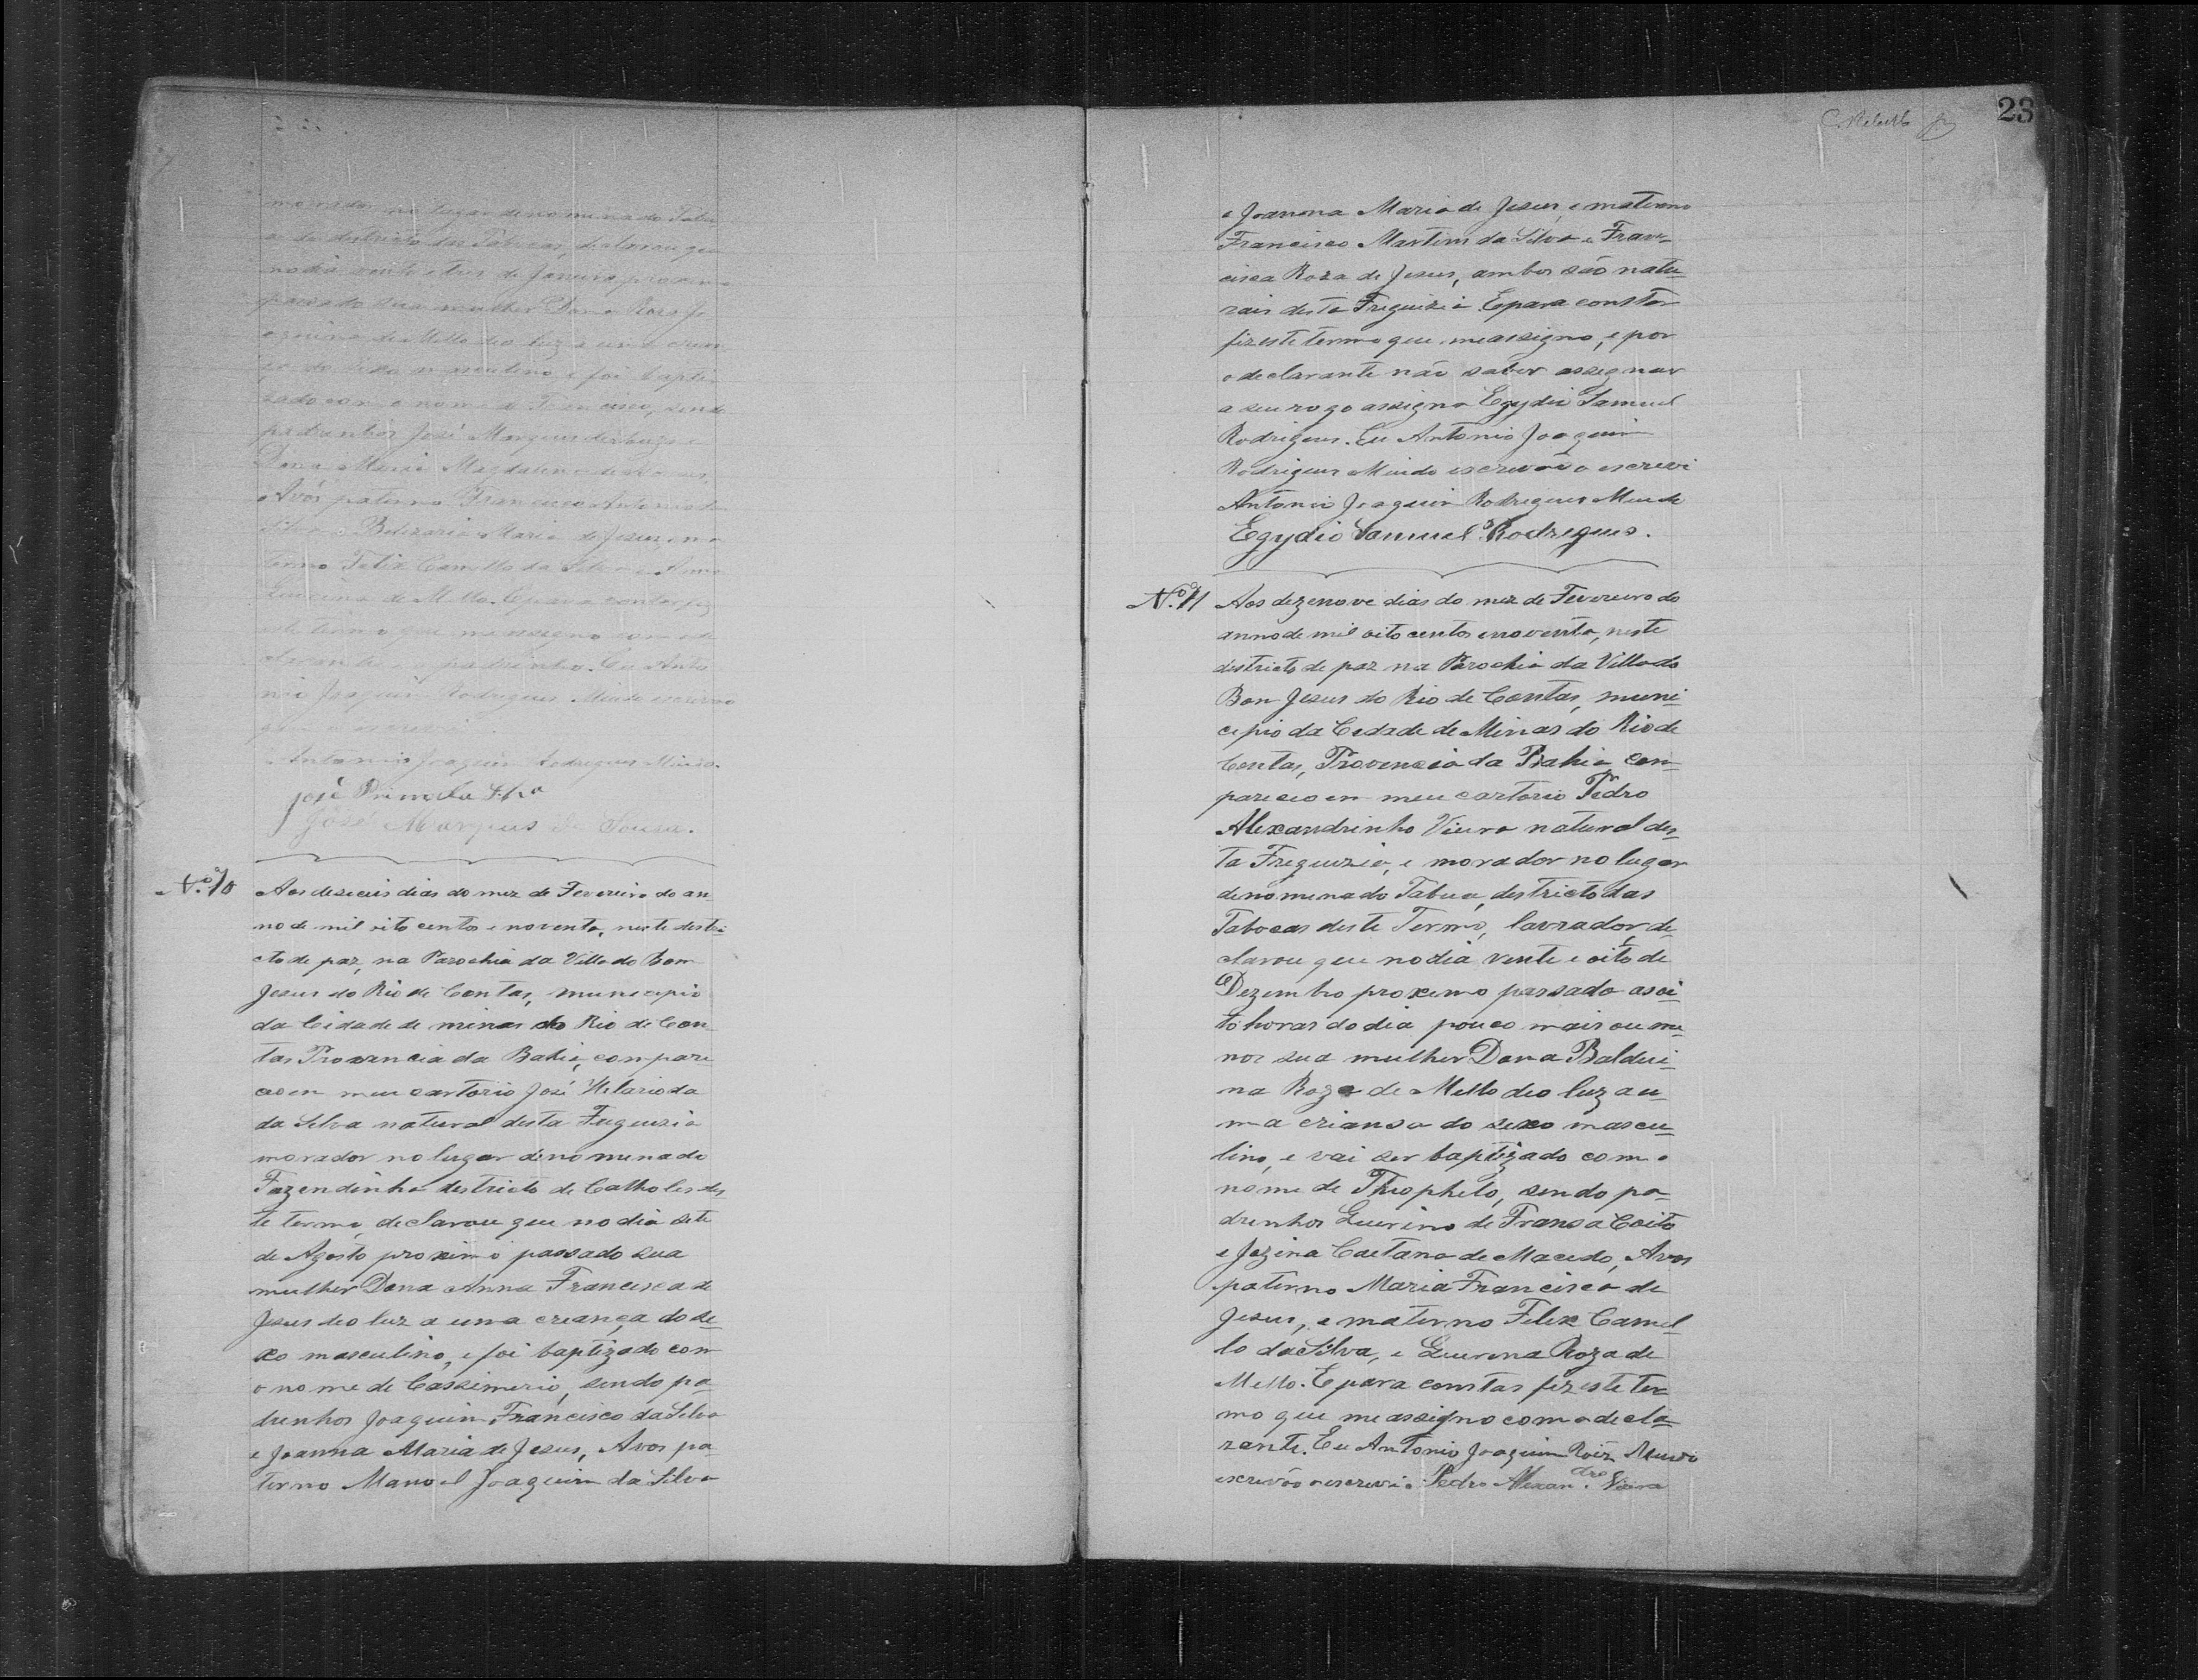 morador no lugar denominado Tabu
a do districto das Tabocas, declarou que
no dia vente e tres de Janeiro proximo
passado sua mulher Dona Roza Jo
aquina de Mello deo luz a uma crian
ça do sexo masculino e foi bapti
zado com o nome de Francisco, sendo
padrinhos José Marques de Souza e
Dona Maria Magdalena de
Avós paterno Francisco Antonio da
Silva e Maria de Jesus, e ma
terno Felix Camello da Silva e
Quirina de Mello. E para constar fiz
este termo que me assigno com o de
clarante e o padrinho. Eu Anto
nio Joaquim Rodrigues Mindo escrivão
que o escrevi.
Antonio Joaquim Rodrigues Mindo.
José da Sª
José Marques de Sousa.
N.º 10 Aos deseceis dias do mez de Fevereiro do an
no de mil oito centos e noventa, neste destri
cto de paz, na Parochia da Villa do Bom
Jesus do Rio de Contas, municipio
da Cidade de minas do Rio de Con
tas Provencia da Bahia, compare
ceo em meu cartorio José Hilario da
da Silva natural desta Freguezia
morador no lugar denomenado
Fazendinha destricto de Catholes des
te termo, declarou que no dia sete
de Agosto proximo passado sua
mulher Dona Anna Francisca de
Jesus deo luz a uma creança do se
xo masculino, e foi baptizado com
o nome de Cassimerio, sendo pa
drenhos Joaquim Francisco da Silva
e Joanna Maria de Jesus, Avos pa
terno Manoel Joaquim da Silva
23
e Joanna Maria de Jesus, e materno
Francisco Martins da Silva e Fran
cisca Roza de Jesus, ambos são natu
rais desta Freguizia E para constar
fiz este termo que me assigno, e por
o declarante não saber assegnar
a seu rogo assigna Egydio Samuel
Rodrigues. Eu Antonio Joaquim
Rodrigues Mindo escrivão o escrevi
Antonio Joaquim Rodrigues Mindo
Egydio Samuel Rodrigues.
N.º 11 Aos dezenove dias do mez de Fevereiro do
anno de mil oito centos e noventa, neste
destricto de paz na Parochia da Villa do
Bom Jesus do Rio de Contas, muni
cepio da Cedade de Minas do Rio de
Contas, Provencia da Bahia com
pareceo em meu cartorio Pedro
Alexandrinho Vieira natural des
ta Freguezia, e morador no lugar
denomenado Tabua, destricto das
Tabocas deste Termo, lavrador, de
clarou que no dia vente e oito de
Dezembro proxemo passado as oi
to horas do dia pouco mais ou me
nos sua mulher Dona Baldui
na Roza de Mello deo luz a u
ma criansa do sexo mascu
lino, e vai ser baptizado com o
nome de Theophelo, sendo pa
drenhos Querino de Fransa Coito
e Jozina Caetana de Macedo, Avos
paterno Maria Francisca de
Jesus, e materno Felix Camel
lo da Silva, e Querena Roza de
Mello. E para constar fiz este ter
mo que me assigno com o decla
rante. Eu Antonio Joaquim Roiz Mindo
escrivão o escrevi. Pedro Alexan.dro Vieira